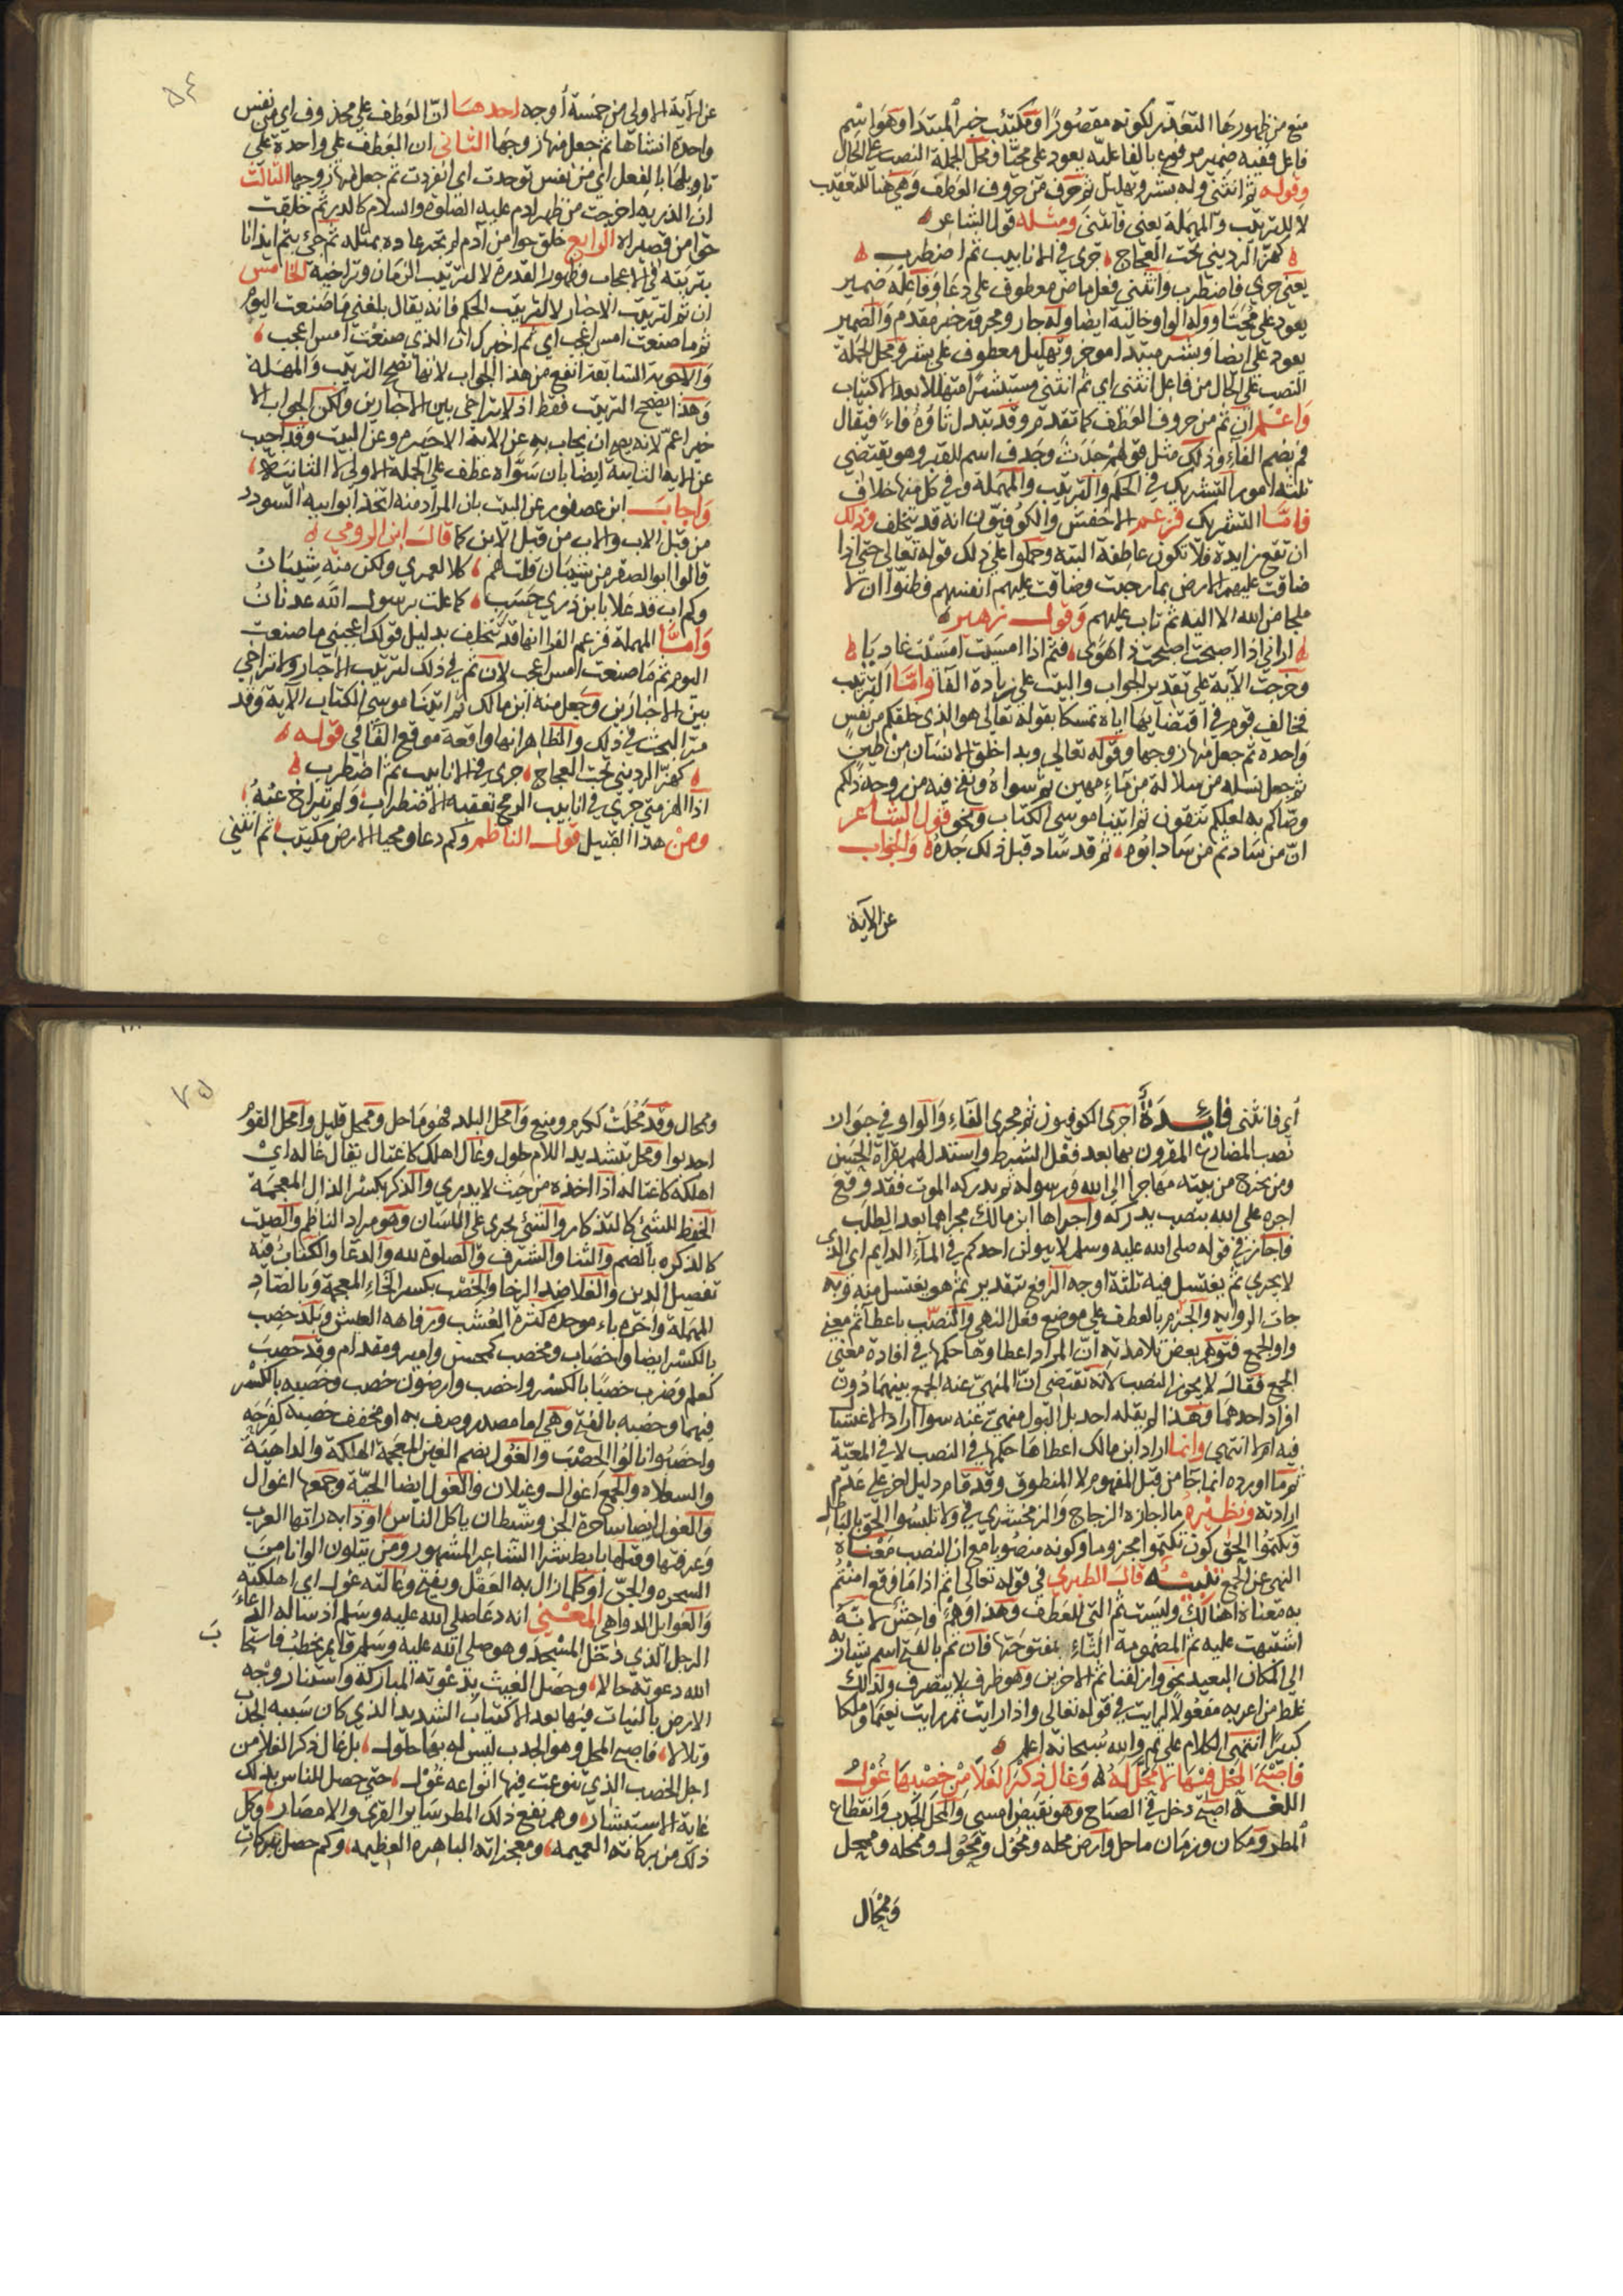 منع من ظهورها التعذر لكونه مقصورا ومكتئب خبر المبتدا وهو اسم
فاعل ففيه ضمير مرفوع بالفاعلية يعود على محيا ومحل الجملة النصب على الحال
وقوله ثم انثنى وله بشر وتهليل ثم حرف من حروف العطف وهي هنا للتعقيب
لا للترتيب والمهملة يعني فانثنى ومثله قول الشاعر
كهز الرديني تحت العجاج جرى في الانابيب ثم اضطرب
يعني جرى فاضطرب وانثنى فعل ماض معطوف على دعا وفاعله ضمير
يعود على محيا وله الواو حالية ايضا وله جار ومجرور خبر مقدم والضمير
يعود على ايضا وبشر مبتدا موخر وتهليل معطوف على بشر ومحل الجملة
النصب على الحال من فاعل انثنى اي ثم انثنى مستبشرا متهللا بعد الاكتئاب
واعلم ان ثم من حروف العطف كما تقدم وقد تبدل ثاؤه فاء فيقال
فم بضم الفاء وذلك مثل قولهم جدث وجدف اسم للقبر وهو يقتضي
ثلثة امور التشريك في الحكم والترتيب والمهملة وفي كل منها خلاف
فاما التشريك فزعم الاخفش والكوفيون انه قد يتخلف وذلك
ان تقع زايدة فلا تكون عاطفة البتة وحملوا على ذلك قوله تعالى حتى اذا
ضاقت عليهم الارض بما رحبت وضاقت عليهم انفسهم وظنوا ان لا
ملجا من الله الا اليه ثم تاب عليهم وقول زهير
اراني اذا اصبحت اصبحت ذا هوى فثم اذا امسيت امسيت غاديا
وخرجت الآية على تقدير الجواب والبيت على زيادة الفا واما الترتيب
فخالف قوم في اقتضايها اياه تمسكا بقوله تعالى هو الذي خلقكم من نفس
واحدة ثم جعل منها زوجها وقوله تعالى وبدا خلق الانسان من طين
ثم جعل نسله من سلالة من ماء مهين ثم سواه ونفخ فيه من روحه ذلكم
وصاكم به لعلكم تتقون ثم اتينا موسى الكتاب ونحو قول الشاعر
ان من ساد ثم من ساد ابوه ثم قد ساد قبل ذلك جده والجواب
عن الآية
٥٤
عن الآية الاولى من خمسة أوجه احدها ان العطف على محذوف اي من نفس
واحدة انشاها ثم جعل منها زوجها الثاني ان العطف على واحدة على
تاويلها بالفعل اي من نفس توحدت اي انفردت ثم جعل منها زوجها الثالث
ان الذرية اخرجت من ظهر ادم عليه الصلوة والسلام كالذر ثم خلقت
حوا من قصيراه الرابع خلق حوا من آدم لم تجر عادة بمثله ثم جئ بثم ايذانا
بترتبه في الاعجاب وظهور القدرة لا لترتيب الزمان وتراخيه الخامس
ان ثم لترتيب الاخبار لا لترتيب الحكم فانه يقال بلغني ما صنعت اليوم
ثم ما صنعت امس اعجب اي ثم اخبرك ان الذي صنعت امس اعجب
والاجوبة السابقة انفع من هذا الجواب لانها تصحح الترتيب والمهلة
وهذا يصحح الترتيب فقط اذ لا تراخي بين الاخبارين ولكن الجواب الا
خير اعم لانه يصح ان يجاب به عن الاية الاخيرة وعن البيت وقد اجيب
عن الاية الثانية ايضا بان سواه عطف على الجملة الاولى لا الثانية
واجاب ابن عصفور عن البيت بان المراد منه اتخذ ابوابيه السودد
من قبل الاب والاب من قبل الابن كما قال ابن الرومي
قالوا ابو الصقر من شيبان قلت لهم كلا لعمري ولكن منه شيبان
وكم اب قد علا بابن ذري حسب كما علت برسول الله عدنان
واما المهملة فزعم الفرا انها قد تتخلف بدليل قولك اعجبني ما صنعت
اليوم ثم ما صنعت امس اعجب لان ثم في ذلك لترتيب الاخبار ولا تراخي
بين الاخبارين وجعل منه ابن مالك ثم اتينا موسى الكتاب الآية وقد
مر البحث في ذلك والظاهر انها واقعة موقع الفا في قوله
كهز الرديني تحت العجاج جرى في الانابيب ثم اضطرب
اذ الهز متى جرى في انابيب الرمح تعقبه الاضطراب ولم يتراخ عنه
ومن هذا القبيل قول الناظم وكم دعا ومحيا الارض مكتئب ثم انثنى
أي فانثنى فايدة أجرى الكوفيون ثم مجرى الفاء والواو في جواز
نصب المضارع المقرون بها بعد فعل الشرط واستدل لهم بقراة الحسن
ومن يخرج من بيته مهاجرا الى الله ورسوله ثم يدركه الموت فقد وقع
اجره على الله بنصب يدركه واجراها ابن مالك مجراهما بعد الطلب
فاجاز في قوله صلى الله عليه وسلم لا يبولن احدكم في الماء الدايم اي الذي
لا يجري ثم يغتسل فيه ثلثة اوجه الرفع بتقدير ثم هو يغتسل منه وبه
جات الرواية والجزم بالعطف على موضع فعل النهي والنصب باعطاء ثم معنى
واو الجمع فتوهم بعض تلامذته ان المراد اعطاوها حكمها في افادة معنى
الجمع فقال لا يجوز النصب لانه يقتضي ان المنهي عنه الجمع بينهما دون
افراد احدهما وهذا لم يقله احد بل البول منهي عنه سوا اراد الاغتسا
فيه ام لا انتهى وانما اراد ابن مالك اعطاها حكمها في النصب لا في المعية
ثم ما اورده انما جا من قبل المفهوم لا المنطوق وقد قام دليل اخر على عدم
ارادته ونظيره ما اجازه الزجاج والزمخشري في ولا تلبسوا الحق بالباطل
وتكتموا الحق كون تكتموا مجزوما وكونه منصوبا مع ان النصب معناه
النهي عن الجمع تنبيه قال الطبري في قوله تعالى اثم اذا ما وقع امنتم
به معناه اهنالك وليست ثم التي للعطف وهذا وهم فاحش لانه
اشتبهت عليه ثم المضمومة الثاء بمفتوحتها فان ثم بالفتح اسم يشار به
الى المكان البعيد نحو وازلفنا ثم الاخرين وهو ظرف لا يتصرف ولذلك
غلط من اعربه مفعولا لرايت في قوله تعالى واذا رايت ثم رايت نعيما وملكا
كبيرا انتهى الكلام على ثم والله سبحانه اعلم
فاصبح المحل فيها لا محل له وغال ذكر الغلا من خصبها غول
اللغة اصبح دخل في الصباح وهو نقيض امسى والمحل الجدب وانقطاع
المطر ومكان وزمان ماحل وارض محله ومحول ومحول وممحله وممحل
ومحال
٥٧
ومحال وقد محلت ككرم ومنع وامحل البلد فهو ماحل وممحل قليل وامحل القوم
اجدبوا ومحل بتشديد اللام حلول وغال اهلك كاغتال يقال غاله اي
اهلكه كاغتاله اذا اخذه من حيث لا يدري والذكر بكسر الذال المعجمة
الحفظ للشئ كالتذكار والشئ يجري على اللسان وهو مراد الناظم والصيت
كالذكره بالضم والثنا والشرف والصلوة لله والدعا والكتاب فيه
تفصيل الدين والغلا ضد الرخا والخصب بكسر الخاء المعجمة وبالصاد
المهملة واخره باء موحده كثرة العشب ورفاهة العيش وبلد خصب
بالكسر ايضا واخصاب ومخصب كمحسن وامير ومقدام وقد خصب
كعلم وضرب خصبا بالكسر واخصب وارضون خصب وخصبه بالكسر
فيهما وخصبه بالفتح وهي اما مصدر وصف به او مخفف خصبه كفرحه
واخصبوا نالوا الخصب والغول بضم الغين المعجمة الهلكة والداهية
والسعلاه والجمع اغوال وغيلان والغول ايضا الحية وجمعها اغوال
والغول ايضا ساحرة الجن وشيطان ياكل الناس او دابه راتها العرب
وعرفتها وقتلها تابط شرا الشاعر المشهور ومن يتلون الوانا من
السحره والجن او كلما زال به العقل ويفتح وغالته غول اي اهلكته
والغوايل الدواهي المعنى انه دعا صلى الله عليه وسلم اذ ساله الدعاء
الرجل الذي دخل المسجد وهو صلى الله عليه وسلم قايم يخطب فاستجاب
الله دعوته حالا وحصل الغيث بدعوته المباركة واستنار وجه
الارض بالنبات فيها بعد الاكتئاب الشديد الذي كان سببه الجدب
وتلالا فاصبح المحل وهو الجدب ليس له بها حلول بل غال ذكر الغلا من
اجل الخصب الذي تنوعت فيها انواعه غول حتى حصل للناس بذلك
غاية الاستبشار وعم نفع ذلك المطر ساير القرى والامصار وكل
ذلك من بركاته العميمه ومعجزاته الباهره العظيمه وكم حصل ببركات